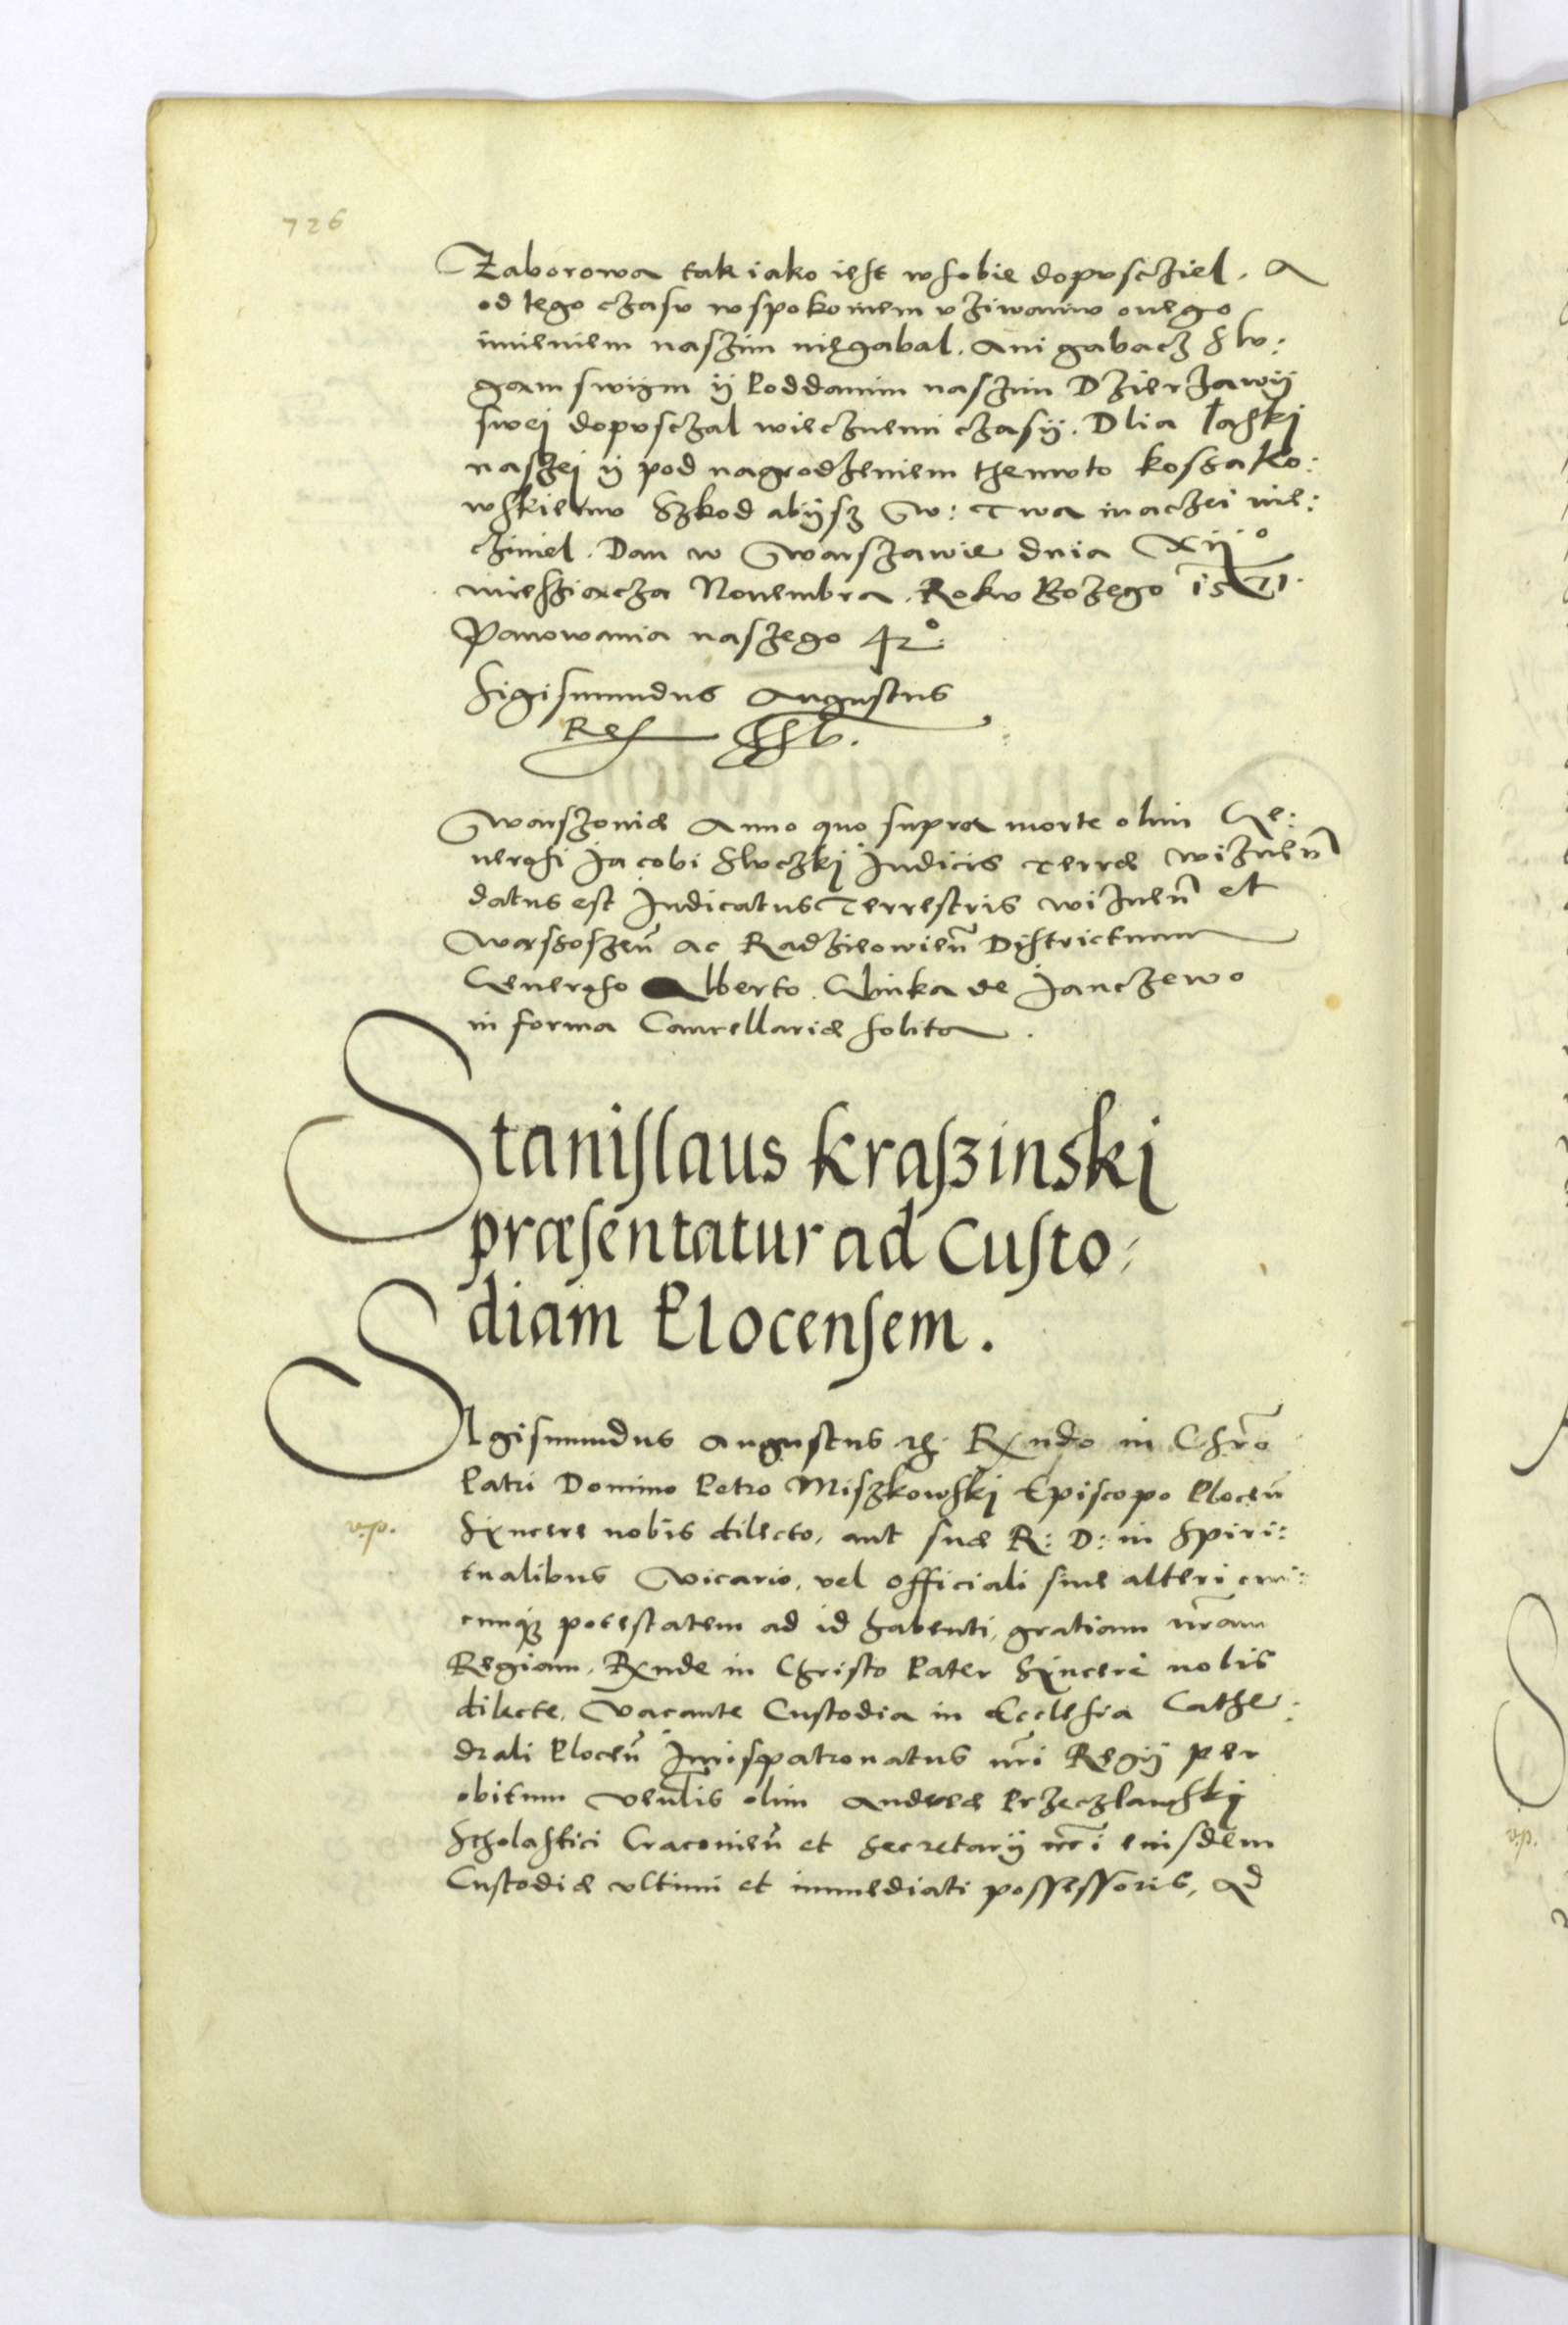 726
Zaborowa tak iako iest wsobie dopuscziel. A
od tego czasu wspokoinem uziwaniu onego
imieniem naszim niegabal. Ani gabacz Slu:
gam swijm ÿ Poddanim naszim Dzierzawÿ
swei dopusczal wiecznemi czasÿ. Dlia łaski
naszei ÿ pod nagrodzeniem themuto Kossako:
wskiemu Szkod abÿsz W: Twa inaczei nie:
cziniel. Dan w Warszawie dnia XII°
miesziacza Nouembra. Roku Bozego 1571.
Panowania naszego 42°.
Sigismundus Augustus
Rex
Warszoviæ Anno quo supra morte olim Ge:
nerosi Jacobi Sluczki Judicis Terræ Wiznen̄
datus est Judicatus Terrestris Wiznen̄ et
Wassoszen̄ ac Radzieowien̄ Districtuum
Generoso Alberto Glinka de Janczewo
in forma Cancellariæ solita.
Stanislaus Kraszinski
præsentatur ad Custo:
diam Plocensem.
SIgismundus Augustus etc. Rx̄ndo in Chr̄o
Patri Domino Petro Miszkowski Episcopo Plocen̄
v.p. Syncere nobis dilecto, aut suæ R: D: in Spiri:
tualibus Vicario, vel Officiali siue alteri cui:
cunq3 potestatem ad id habenti, gratiam nr̄am
Regiam. Rx̄nde in Christo Pater Syncerè nobis
dilecte. Vacante Custodia in Ecclesia Cathe:
drali Plocen̄ Jurispatronatus nr̄i Regÿ per
obitum Ven̄lis olim Andreæ Przeczlawski
Scholastici Cracouien̄ et Secretarÿ nr̄i eiusdem
Custodiæ vltimi et immediati possessoris, Ad